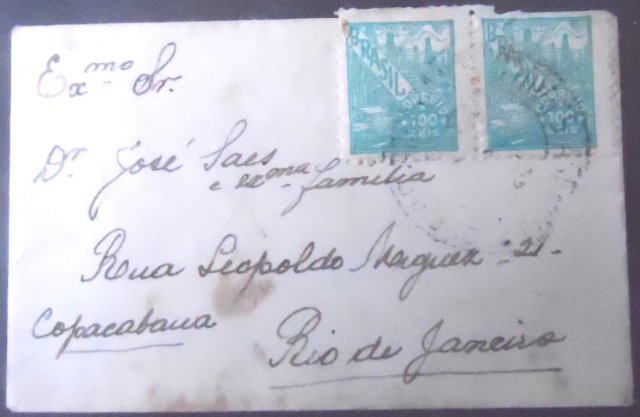 Exmo Sr.
Dr José Saes
e exma familia
Rua Leopoldo Miguez - 21 -
Copacabana
Rio de Janeiro
BRASIL
CORREIO
100
RÉIS
BRASIL
CORREIO
100
RÉIS